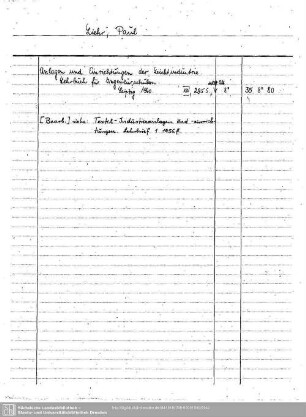 Liehr, Paul
Anlagen und Einrichtungen der Textilindustrie
Lehrbuch für Ingenieurschulen
Leipzig 1960 285 S. 8° 35 8° 80
[Bearb.] siehe: Textil-Industrieanlagen und -einrich-
tungen. Lehrbrief 1 1956 ff.
Sächsische Landesbibliothek -
Staats- und Universitätsbibliothek Dresden